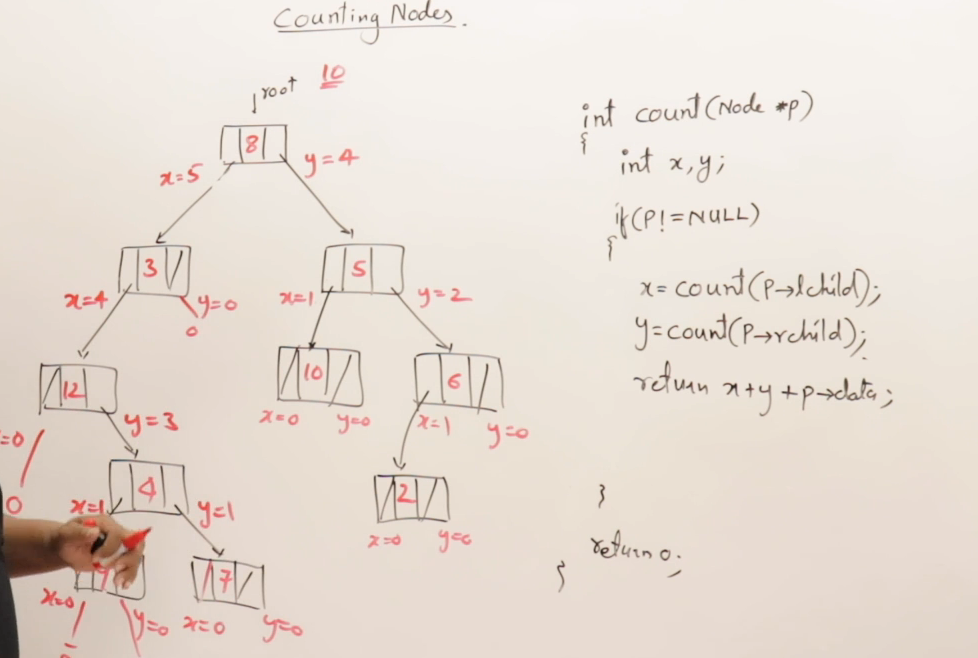 Counting Nodes.
root 10
8
x=5 y=4
3 5
x=4 y=0 x=1 y=2
0
12 10 6
y=3 x=0 y=0 x=1 y=0
=0
0
4 2
x=1 y=1 x=0 y=0
7
x=0 y=0 x=0 y=0
int count(Node *p)
{
int x,y;
if(P!=NULL)
{
x=count(P→lchild);
y=count(P→rchild);
return x+y+p→data;
}
return 0;
}